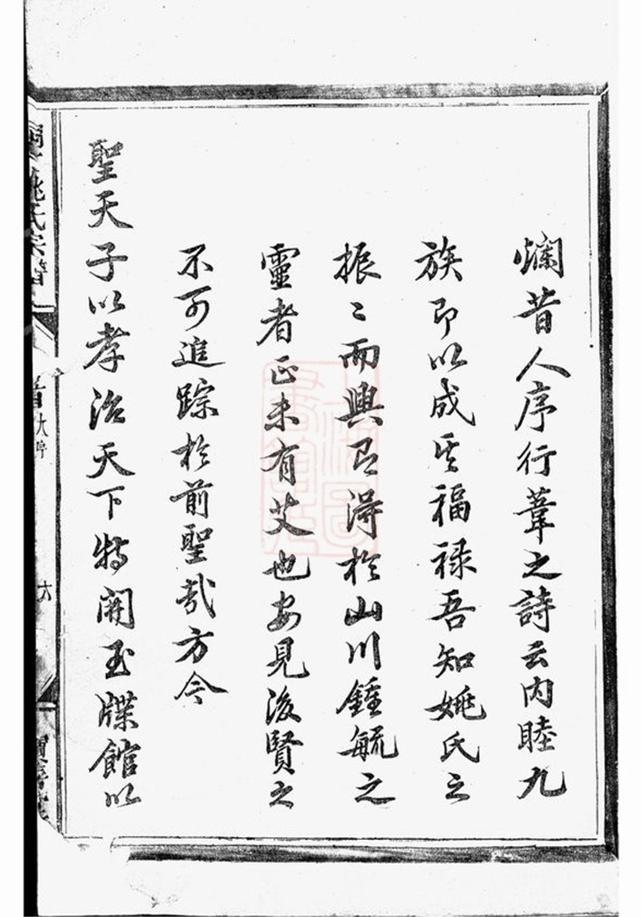 爛昔人序行葦之詩云内睦九
族即以成其福禄吾知姚氏之
振〻而興即得於山川鍾毓之
靈者正未有艾也安見後賢之
不可追踪於前聖哉方今
聖天子以孝治天下特開玉牒館以
姚氏宗譜
首
六